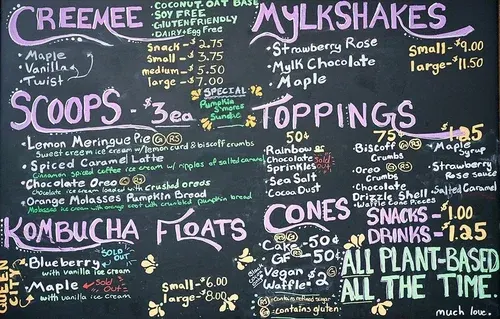 CREEMEE
COCONUT OAT BASE
SOY FREE
GLUTEN FRIENDLY
DAIRY + Egg FREE
• Maple
• Vanilla
• Twist
Snack - $2.75
Small - $3.75
medium - $5.50
large - $7.00
SPECIAL
Pumpkin
S'mores
Sundae
MYLKSHAKES
• Strawberry Rose
• Mylk Chocolate
• Maple
Small - $9.00
large - $11.50
SCOOPS - $3ea
• Lemon Meringue Pie G RS
Sweet cream ice cream w/ lemon curd & biscoff crumbs
• Spiced Caramel Latte
Cinnamon spiced coffee ice cream w/ ripples of salted caramel
• Chocolate Oreo G RS
Chocolate ice cream loaded with crushed oreos
• Orange Molasses Pumpkin Bread
Molasses ice cream with orange zest and crumbled pumpkin bread
TOPPINGS
50¢
• Rainbow or
Chocolate Sold out
Sprinkles
• Sea Salt
• Cocoa Dust
75¢
• Biscoff G RS
Crumbs
• Oreo G RS
Crumbs
• Chocolate
Drizzle Shell
• Waffle Cone Pieces
$1.25
• Maple
Syrup
• Strawberry
Rose sauce
• Salted Caramel
KOMBUCHA FLOATS
• Blueberry SOLD OUT
with vanilla ice cream
• Maple Sold Out
with vanilla ice cream
QUEEN CITY
Small - $6.00
large - $8.00
CONES
Cake - 50¢
GF - 50¢
Vegan
Waffle $2
RS = Contains refined sugar
G = Contains gluten
SNACKS - $1.00
DRINKS - $1.25
ALL PLANT-BASED
ALL THE TIME.
much love.